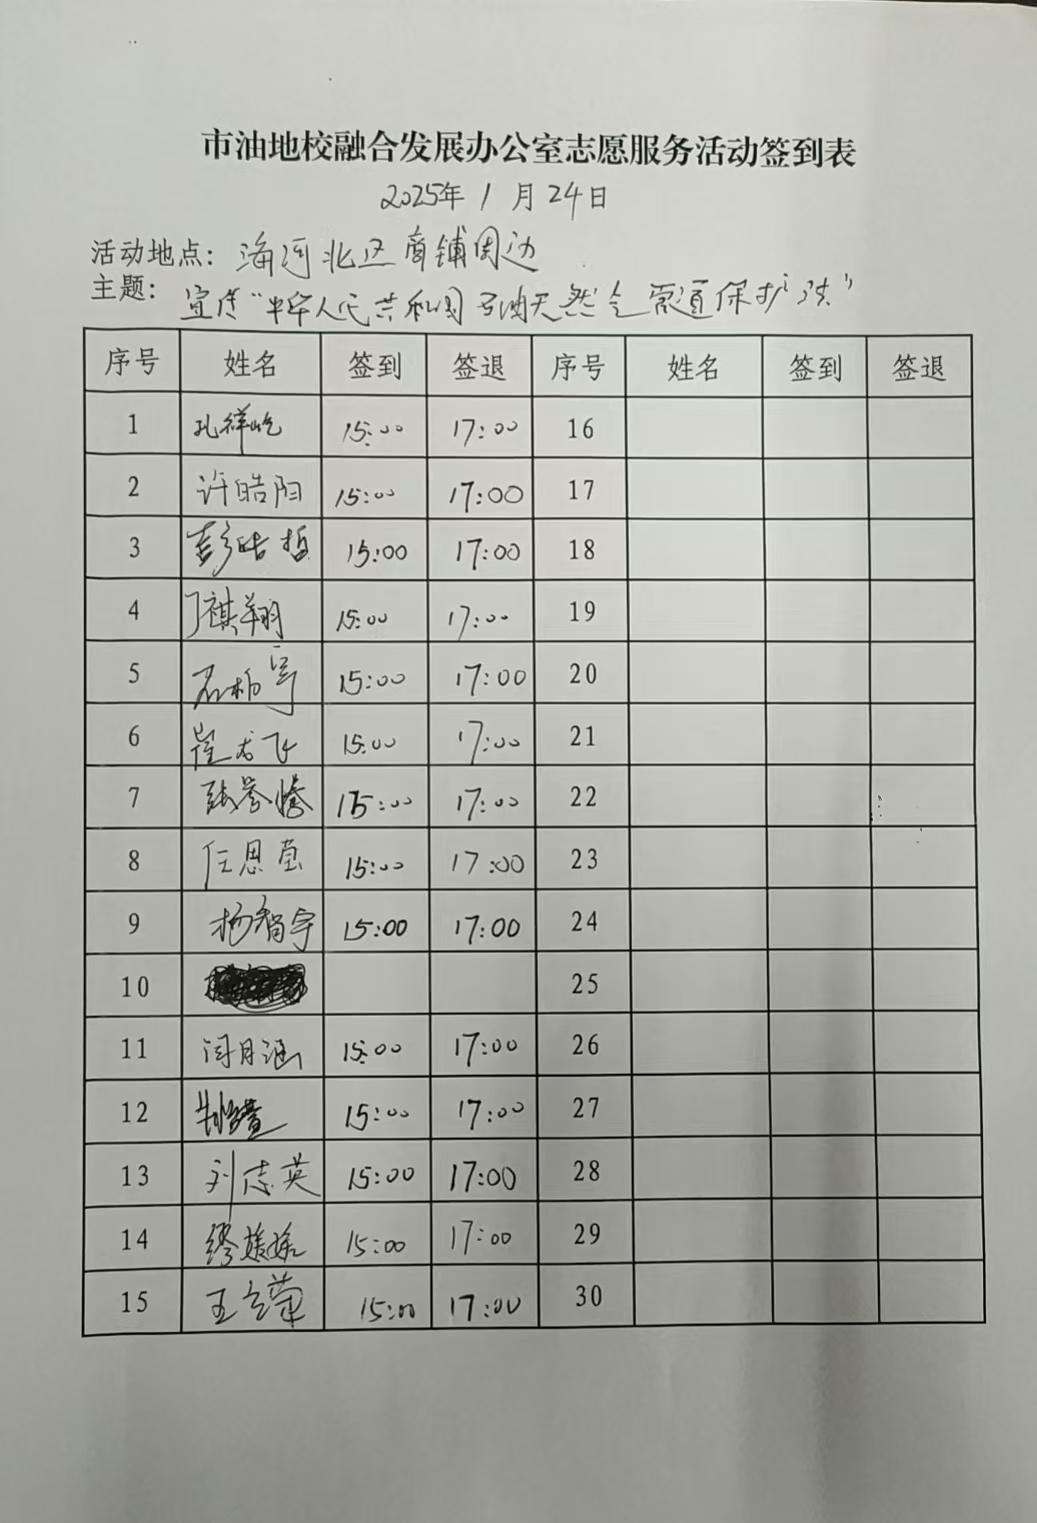 市油地校融合发展办公室志愿服务活动签到表
2025年1月24日
活动地点：海河北区商铺周边
主题：宣传“中华人民共和国石油天然气管道保护法”
序号 姓名 签到 签退 序号 姓名 签到 签退
1 孔祥屹 15:00 17:00 16
2 许皓阳 15:00 17:00 17
3 彭皓哲 15:00 17:00 18
4 丁祺翔 15:00 17:00 19
5 石柏宇 15:00 17:00 20
6 崔龙飞 15:00 17:00 21
7 张誉腾 15:00 17:00 22
8 任思莹 15:00 17:00 23
9 杨智宇 15:00 17:00 24
10 25
11 闫月涵 15:00 17:00 26
12 15:00 17:00 27
13 刘志英 15:00 17:00 28
14 缪媛媛 15:00 17:00 29
15 王立荣 15:00 17:00 30